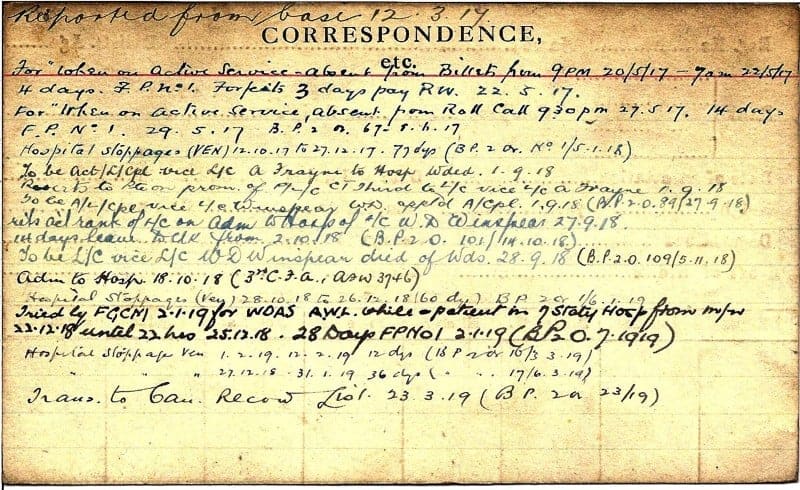 Reported from base 12.3.17
CORRESPONDENCE,
etc.
For "When on Active Service - absent from Billets from 9 PM 20/5/17 - 7 am 22/5/17
4 days. F.P. No 1. Forfeits 3 days pay RW. 22.5.17.
For "When on active Service, absent from Roll Call 930pm 27.5.17. 14 days
F.P. No 1. 29.5.17 B.P.2 O. 67
Hospital Stoppages (VEN) 12.10.17 to 27.12.17. 77 dys (B.P.2 Or. No 1/5.1.18)
To be Act/L/Cpl vice L/C A Frayne to Hosp Wded. 1.9.18
Reverts to Pte on prom. of A/L/C CT Third to L/C vice L/C A Frayne 1.9.18
To be A/L/Cpl vice L/C Winspear W.D. app'td A/Cpl. 1.9.18 (B.P.2.O.89/27.9.18)
rets act rank of L/C on Adm to Hosp of L/C W.D Winspear 27.9.18.
14 days leave to UK from 2.10.18 (B.P.2 O. 101/14.10.18)
To be L/C vice L/C W D Winspear died of Wds. 28.9.18 (B.P.2.O. 109/5.11.18)
Adm to Hosp. 18.10.18 (3rd C.F.A.; AFW 3946)
Hospital Stoppages (Ven) 28.10.18 to 26.12.18 (60 dys) B.P.2 Or 1/6.1.19
Tried by FGCM 2.1.19 for WOAS AWL. while a patient in 7 Staty Hosp from
22.12.18 until 22 hrs 25.12.18. 28 Days FPNo1 2.1.19 (BP2 O. 7.1919)
Hospital Stoppage Ven 1.2.19. 12.2.19 12 dys (B P 2 Or 16/3.3.19)
" " " 27.12.18 - 31.1.19 36 dys ( " " . 17/6.3.19)
Trans. to Can. Record List. 23.3.19 (B.P. 2 Or 23/19)